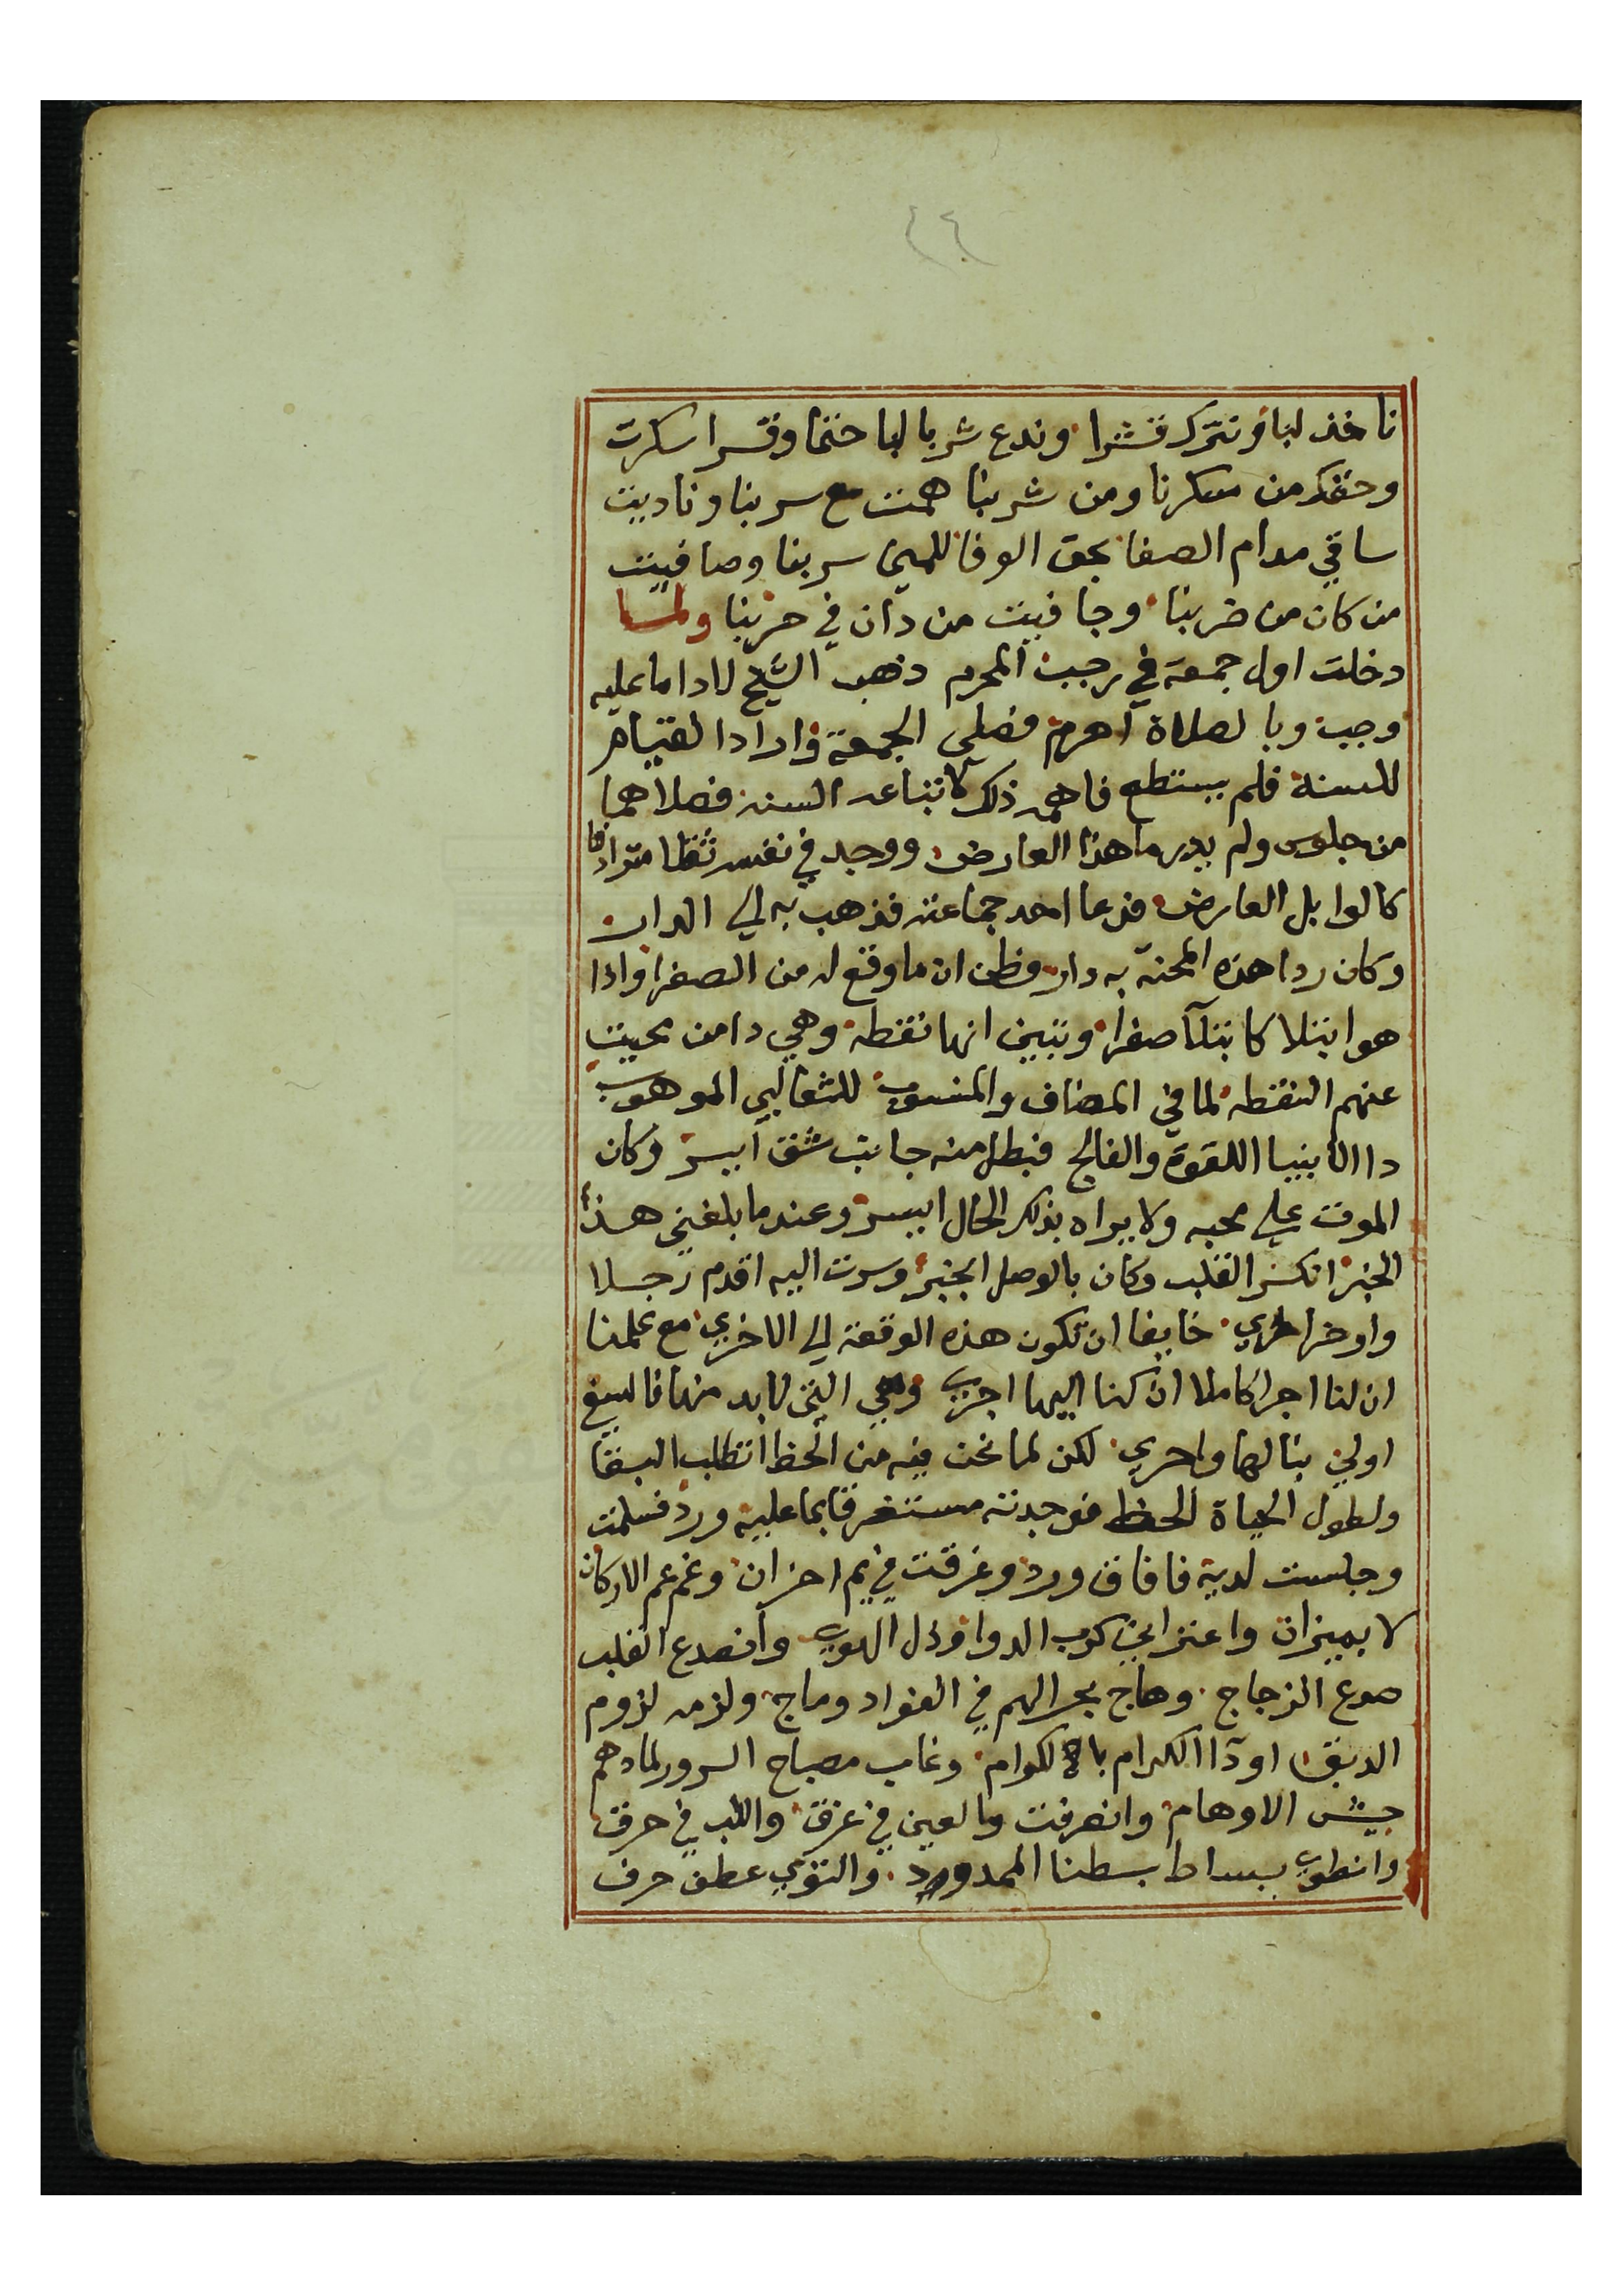 ٢٤
ناخذ لبا ونترك قشرا وندع شربا لبا حتما وقسرا سكرت
وحقكم من سكرنا ومن شربنا همت مع سربنا وناديت
ساقي مدام الصفا بحق الوفا للمي سربنا وصافيت
من كان من ضربنا وجافيت من دان في حزبنا ولما
دخلت اول جمعة في رجب المحرم ذهب الشيخ لادا ما عليه
وجب وبالصلاة اهرم فصلي الجمعة واراد القيام
للسنة فلم يستطع فاهمه ذلك لاتباعه السنة فصلاهما
من جلوس ولم يدر ما هذا العارض ووجد في نفسه ثقلا مترادفا
كالوابل العارض فدعا احد جماعته فذهب به الي الدار
وكان ردا هذه المحنة به دار وظن ان ما وقع له من الصفرا واذا
هو ابتلا كابتلآ صفرا وتبين انها نقطة وهي دا من يحيت
عنهم النقطه لما في المضاف والمنسوب للثعالبي الموهوب
دا الانبيا اللقوة والفالج فبطل منه جانب شق ايسر وكان
الموت علي محبه ولا يراه بذلك الحال ايسر وعندما بلغني هذا
الخبر انكسر القلب وكان بالوصل انجبر وسرت اليه اقدم رجلا
واوخر اخري خايفا ان تكون هذه الوقعة الي الاخري مع علمنا
ان لنا اجرا كاملا ان كنا اليها اجري وهي التي لا بد منها فالسبق
اولي بنا لها واحري لكن لما نحن فيه من الحظ انطلب البقا
ولطول الحياة الحظ فوجدته مستغرقا بما عليه ورد فسلمت
وجلست لديه فافاق ورد وغرقت في يم احزان وغم عم الاركان
لا بميزان واعتراني كرب الدوا وذل الهوي وانصدع القلب
صدع الزجاج وهاج بحر الهم في الفواد وماج ولزمه لزوم
الدبق اودآ الكرام بالكوام وغاب مصباح السرور لما دهم
جيش الاوهام وانصرفت والعين في غرق واللب في حرق
وانطوي بساط بسطنا الممدود والتوي عطف حرف